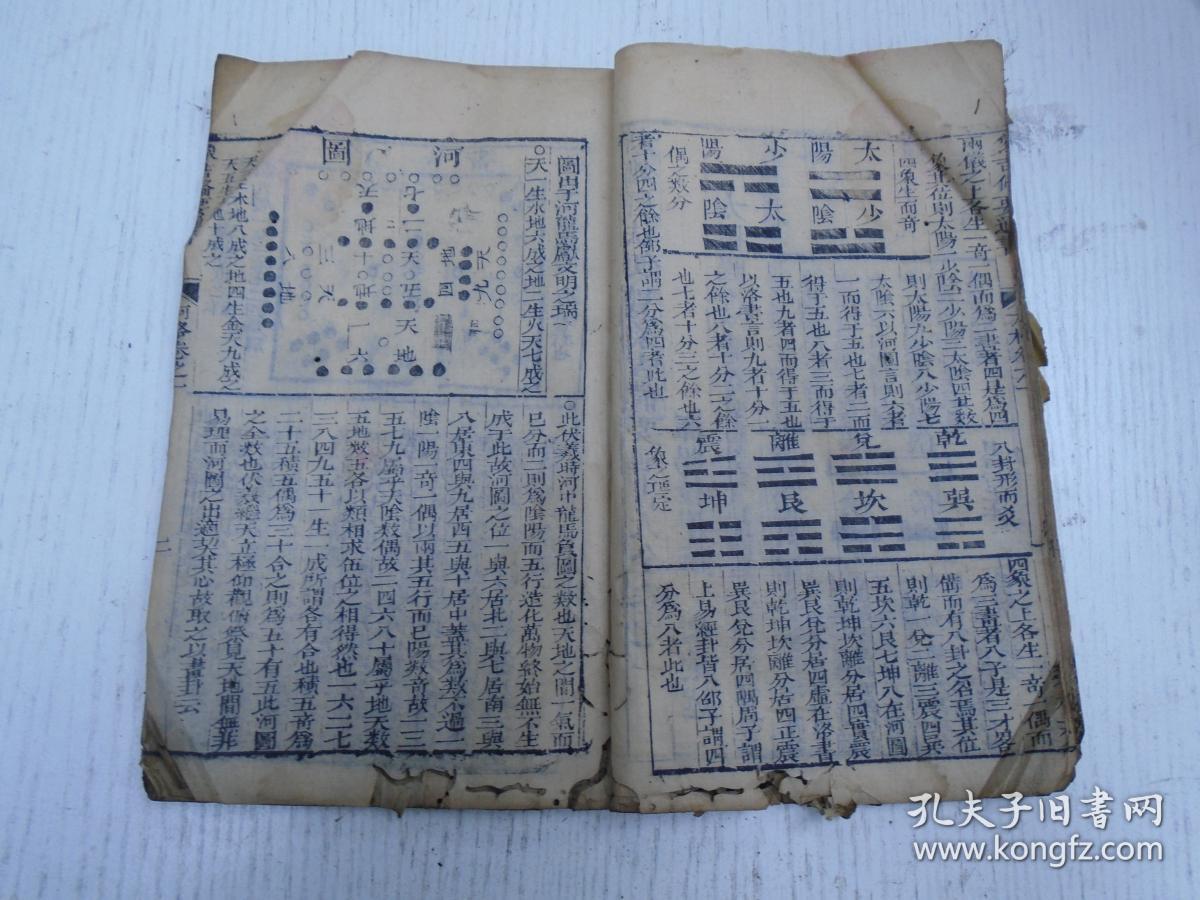 兩儀之上各生一奇一偶而爲二畫者四是爲四
象其位則太陽一少陰二少陽三太陰四其數
則太陽九少陰八少陽七
太陰六以河圖言則六者
一而得于五也七者二而
得于五也八者三而得于
五也九者四而得于五也
以洛書言則九者十分一
之餘也八者十分二之餘
也七者十分三之餘也六
者十分四之餘也邵子謂二分爲四者此也
太陽
少陰
少陽
太陰
四象生而奇
偶之數分
八卦形而爻
象之理定
乾
兌
離
震
巽
坎
艮
坤
四象之上各生一奇一偶而
爲三畫者八于是三才畧
備而有八卦之名焉其位
則乾一兌二離三震四巽
五坎六艮七坤八在河圖
則乾坤坎離分居四實震
巽艮兌分居四虛在洛書
則乾坤坎離分居四正震
巽艮兌分居四隅周子謂
上易經卦皆八邵子謂四
分爲八者此也
圖出于河龍馬獻文明之瑞
天一生水地六成之地二生火天七成之
河圖
天五生土地十成之
地八成之地四生金天九成之
此伏羲時河中龍馬負圖之數也天地之間一氣而
已分而二則爲陰陽而五行造化萬物終始無不生
成于此故河圖之位一與六居北二與七居南三與
八居東四與九居西五與十居中葢其爲數不過一
陰一陽一奇一偶以兩其五行而已陽數奇故一三
五七九屬乎天陰數偶故二四六八十屬乎地天數
五地數五各以類相求伍位之相得然也一六二七
三八四九五十一生一成所謂各有合也積五奇爲
二十五積五偶爲三十合之則爲五十有五此河圖
之全數也伏羲繼天立極仰觀俯察見天地間無非
易理而河圖之出適契其心故取之以畫卦云
二
孔夫子旧书网
www.kongfz.com